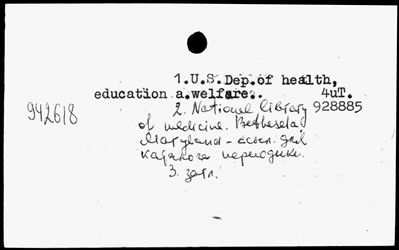 1.U.S.Dep.of health,
education a.welfare.. 4uT.
2. National library 928885
942618
of medicine. Bethesda
Maryland - осн. для
каталога периодики.
3. загл.